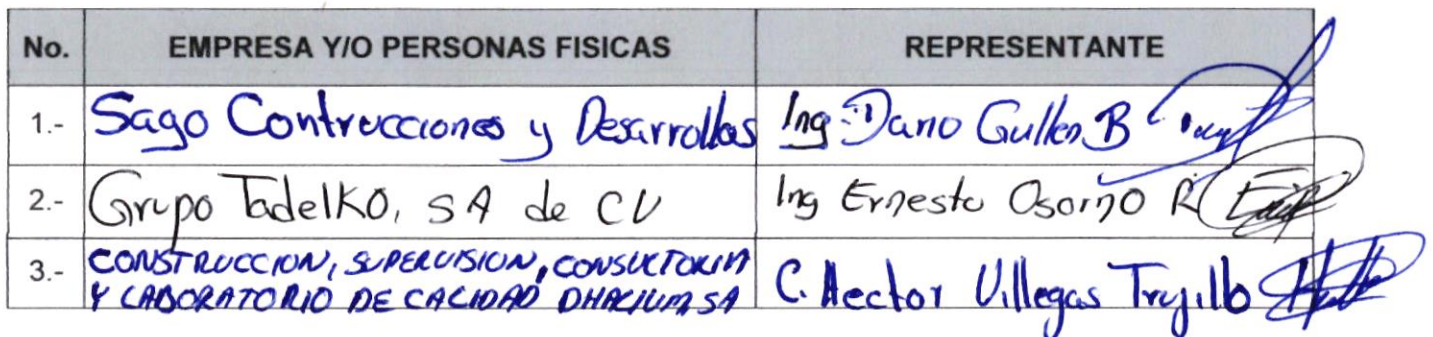 No. EMPRESA Y/O PERSONAS FISICAS REPRESENTANTE
1.- Sago Contrucciones y Desarrollos Ing. Dario Guillen B
2.- Grupo Tadelko, SA de CV Ing Ernesto Osorno R
3.- CONSTRUCCION, SUPERVISION, CONSULTORIA
Y LABORATORIO DE CALIDAD DHACIUM SA C. Hector Villegas Trujillo